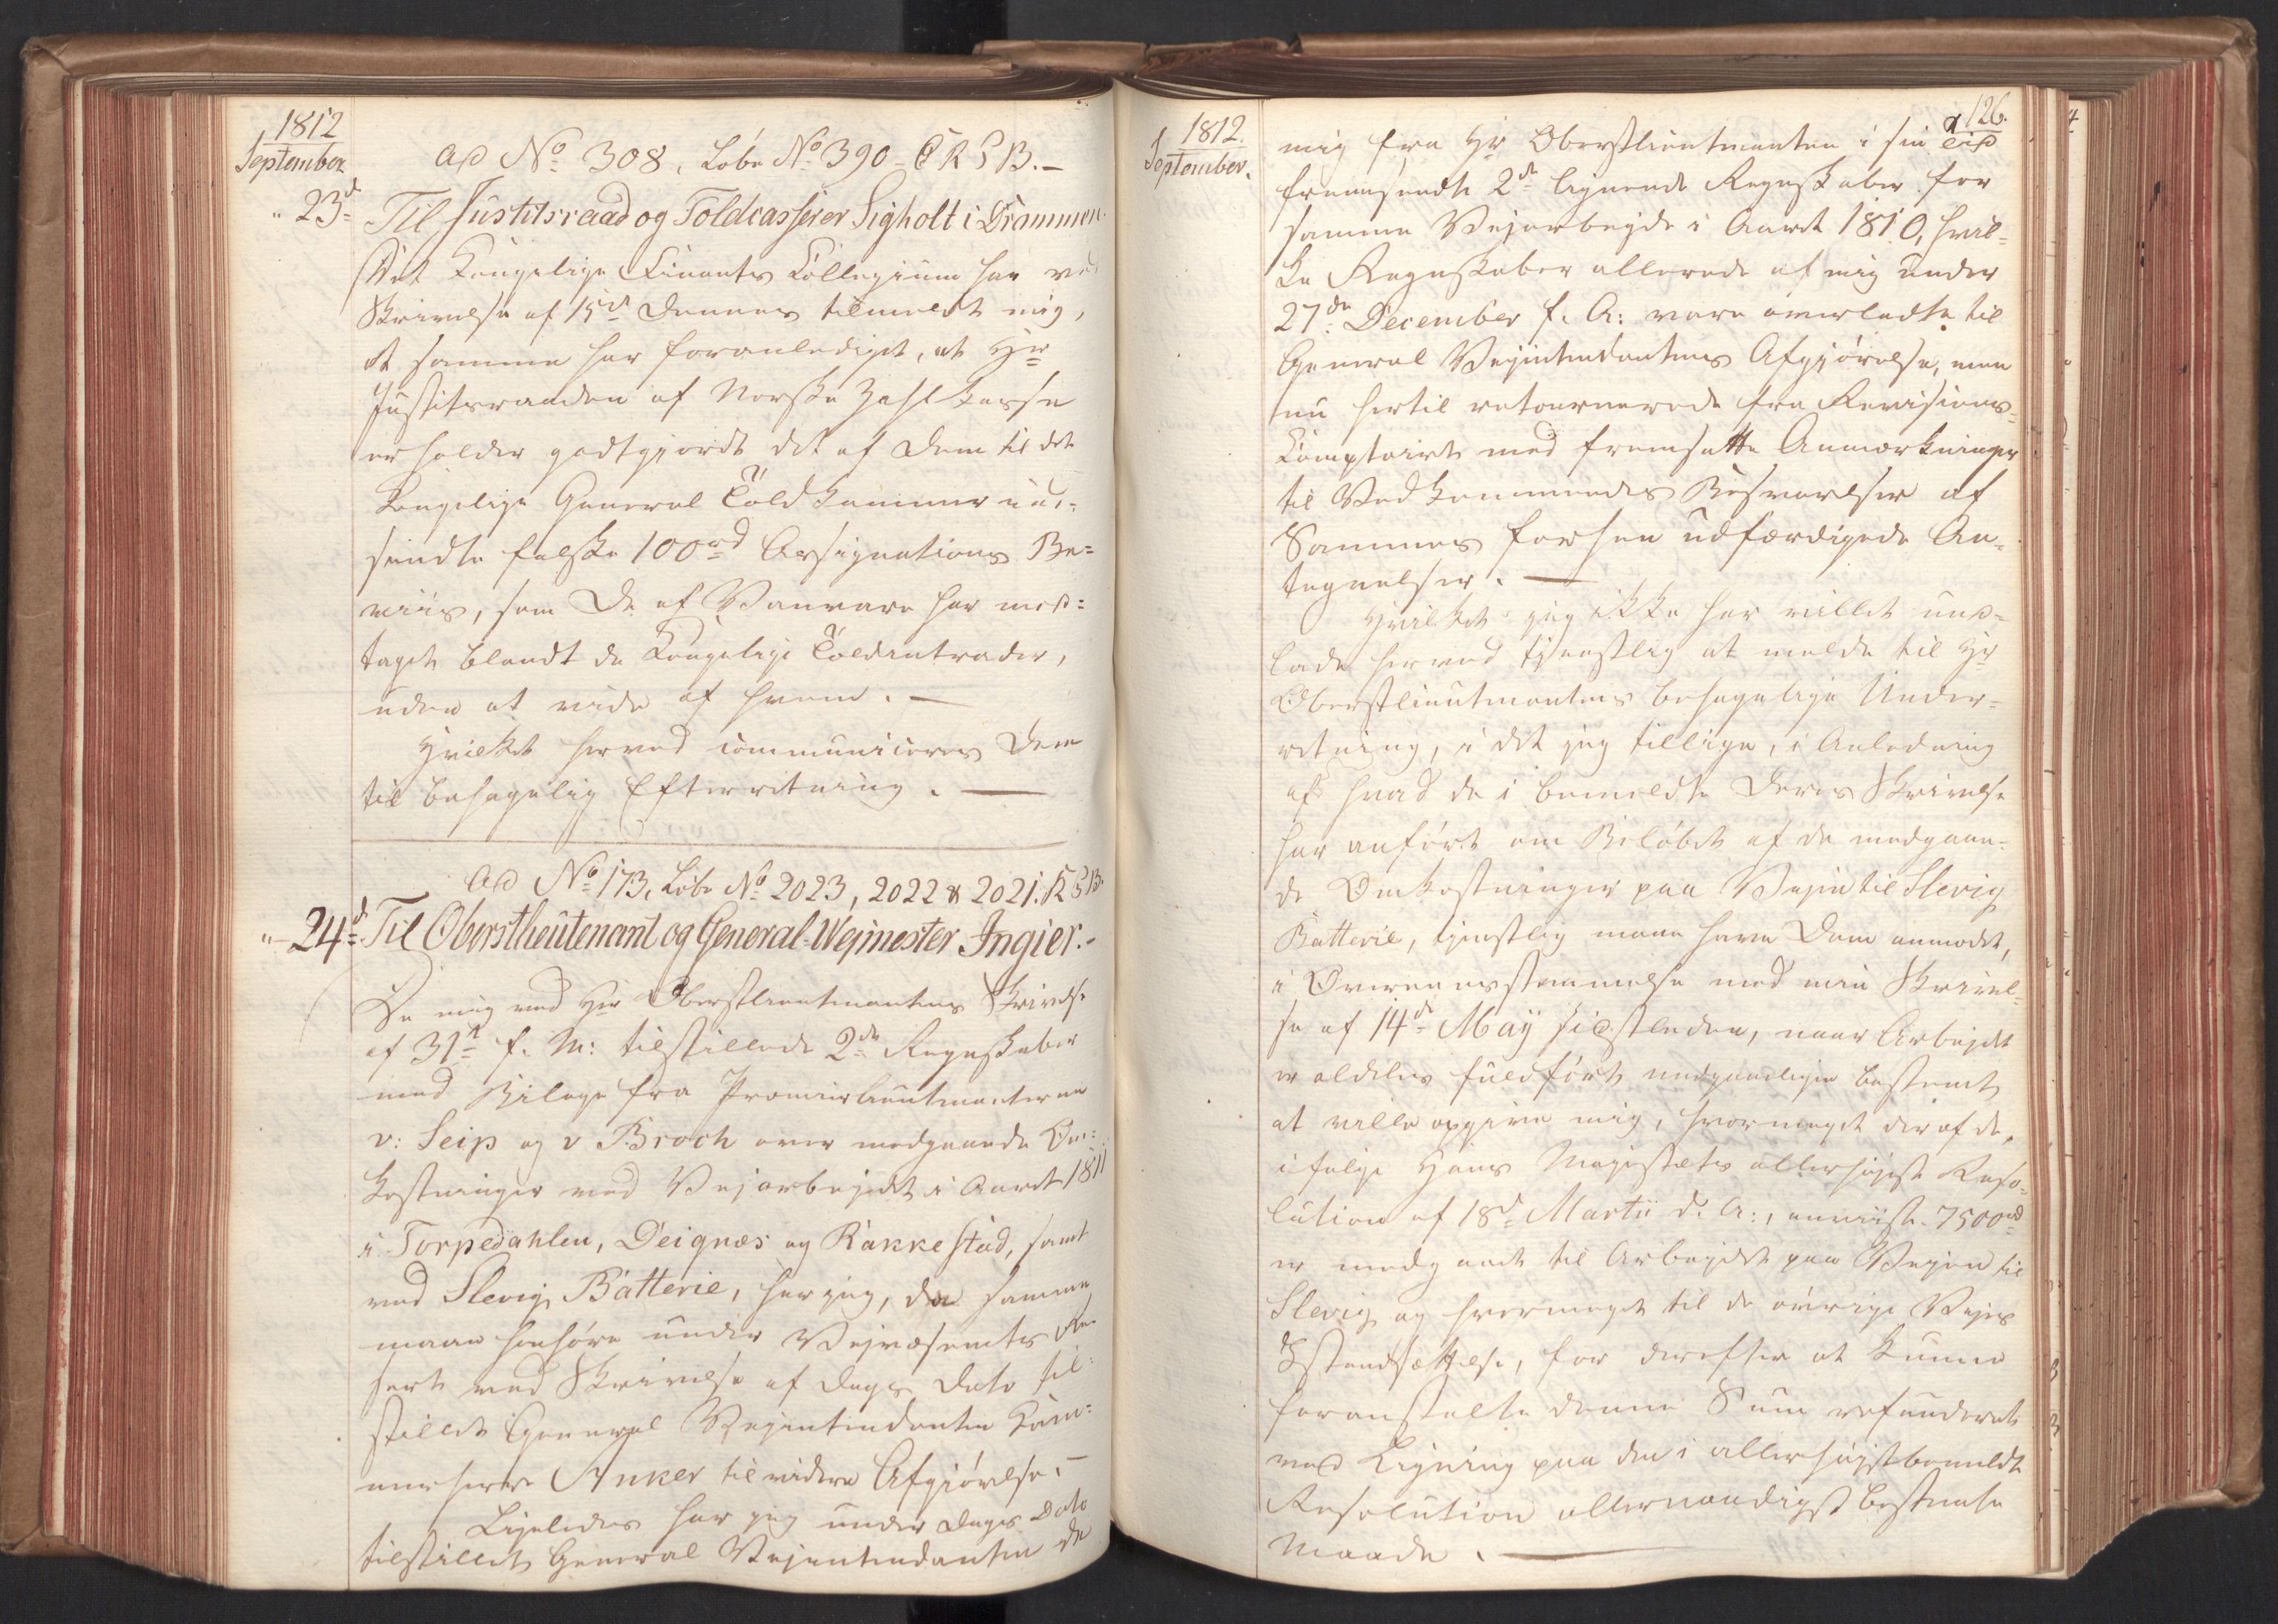 1812
September
23d
ad No 308, Løbe No 390 - C R S B. -
Til Justitsraad og Toldcasserer Sigholt i Drammen.
Det Kongelige Finants Collegium har ved
Skrivelse af 15de dennes tilmeldt mig,
at samme har foranlediget, at Hr
Justitsraaden af Norske Zahlkasse
erholder godtgjordt det af Dem til det
Kongelige General Toldkammer ind-
sendte falske 100rd Assignations Be-
viis, som De af Vanvare har mod-
taget blandt de Kongelige Toldintrader,
uden at vide af hvem. -
Hvilket herved communiceres Dem
til behagelig Efterretning. -
ad No 173, Løbe No 2023, 2022 & 2021. R S B.
24d
Til Oberstlieutenant og General-Wejmester Ingier. -
De mig med Hr Oberstlieutnantens Skrivelse
af 31te f. M: tilstillede 2de Regnskaber
med Bilage fra Premierlieutnanterne
v: Seip og v Broch over medgaaede Om-
kostninger ved Vejarbejdet i Aaret 1811
i Torpedahlen, Deignæs og Rakkestad, samt
ved Slevig Batterie, har jeg, da samme
maae henhøre under Vejvæsenets Re-
sort ved Skrivelse af Dags Dato til-
stillet General Vejintendanten Kam-
merherre Anker til videre Afgjørelse. -
Ligeledes har jeg under Dags Dato
tilstillet General Vejintendanten de
126.
1812.
September.
mig fra Hr Oberstlieutnanten i sin Tid
fremsendte 2de lignende Regnskaber for
samme Vejarbejde i Aaret 1810, hvil-
ke Regnskaber allerede af mig under
27de December f. A: vare overladte til
General Vejintendantens Afgjørelse, men
nu hertil retournerede fra Revisions-
Comptoiret med fremsatte Anmærkninger
til Vedkommendes Besvarelser af
Sammes forhen udfærdigede An-
tegnelser. -
Hvilket jeg ikke har villet und-
lade herved tjenstlig at melde til Hr
Oberstlieutnantens behagelige Under-
retning, i det jeg tillige, i Anledning
af hvad De i bemeldte Deres Skrivelse
har anført om Beløbet af de medgaae-
de Omkostninger paa Vejen til Slevig
Batterie, tjenstlig maae have Dem anmodet,
i Overeensstemmelse med min Skrivel-
se af 14de May sidstleden, naar Arbejdet
er aldeles fuldført undgaaeligen bestemt
at ville opgive mig, hvormeget der af de,
ifølge Hans Majestæts allerhøjeste Reso-
lution af 18d Martii d. A:, anviiste 7500rd
er medgaaet til Arbejdet paa Vejen til
Slevig og hvormeget til de øvrige Vejes
Istandsættelse, for derefter at kunne
foranstalte denne Sum refunderet
ved Ligning paa den i allerhøjstbemeldte
Resolution allernaadigst bestemte
Maade. -